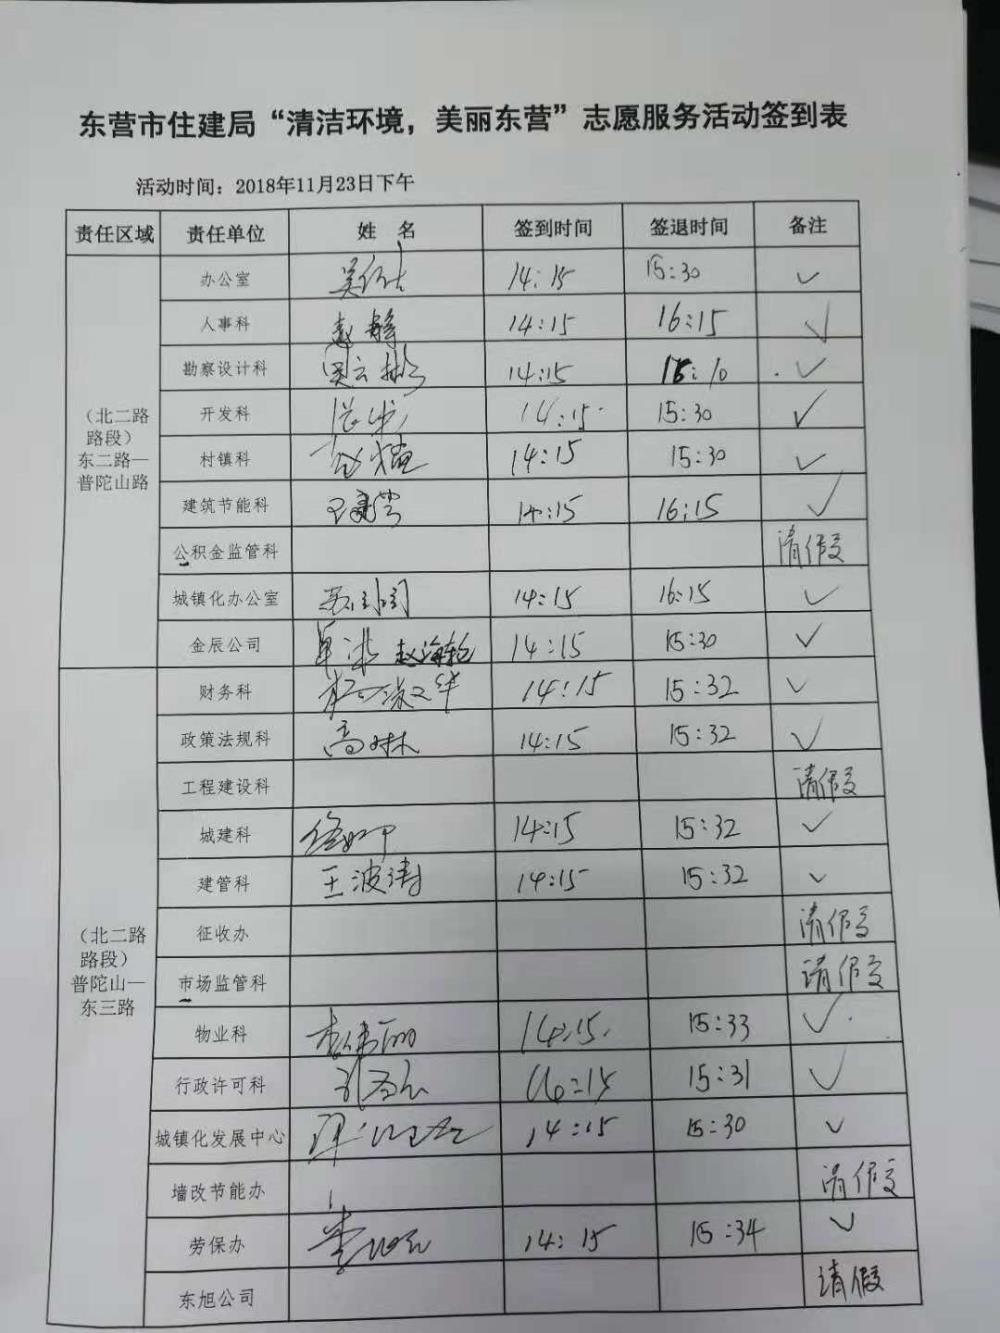 东营市住建局“清洁环境，美丽东营”志愿服务活动签到表
活动时间：2018年11月23日下午
责任区域 责任单位 姓 名 签到时间 签退时间 备注
（北二路
路段）
东二路—
普陀山路
办公室 14:15 15:30 ✓
人事科 赵静 14:15 16:15 ✓
勘察设计科 14:15 ✓
开发科 14:15 15:30 ✓
村镇科 14:15 15:30 ✓
建筑节能科 14:15 16:15 ✓
公积金监管科 请假
城镇化办公室 14:15 16:15 ✓
金辰公司 14:15 15:30 ✓
（北二路
路段）
普陀山—
东三路
财务科 14:15 15:32 ✓
政策法规科 14:15 15:32 ✓
工程建设科 请假
城建科 14:15 15:32 ✓
建管科 王波涛 14:15 15:32 ✓
征收办 请假
市场监管科 请假
物业科 李伟丽 14:15 15:33 ✓
行政许可科 15:31 ✓
城镇化发展中心 14:15 15:30 ✓
墙改节能办 请假
劳保办 14:15 15:34 ✓
东旭公司 请假